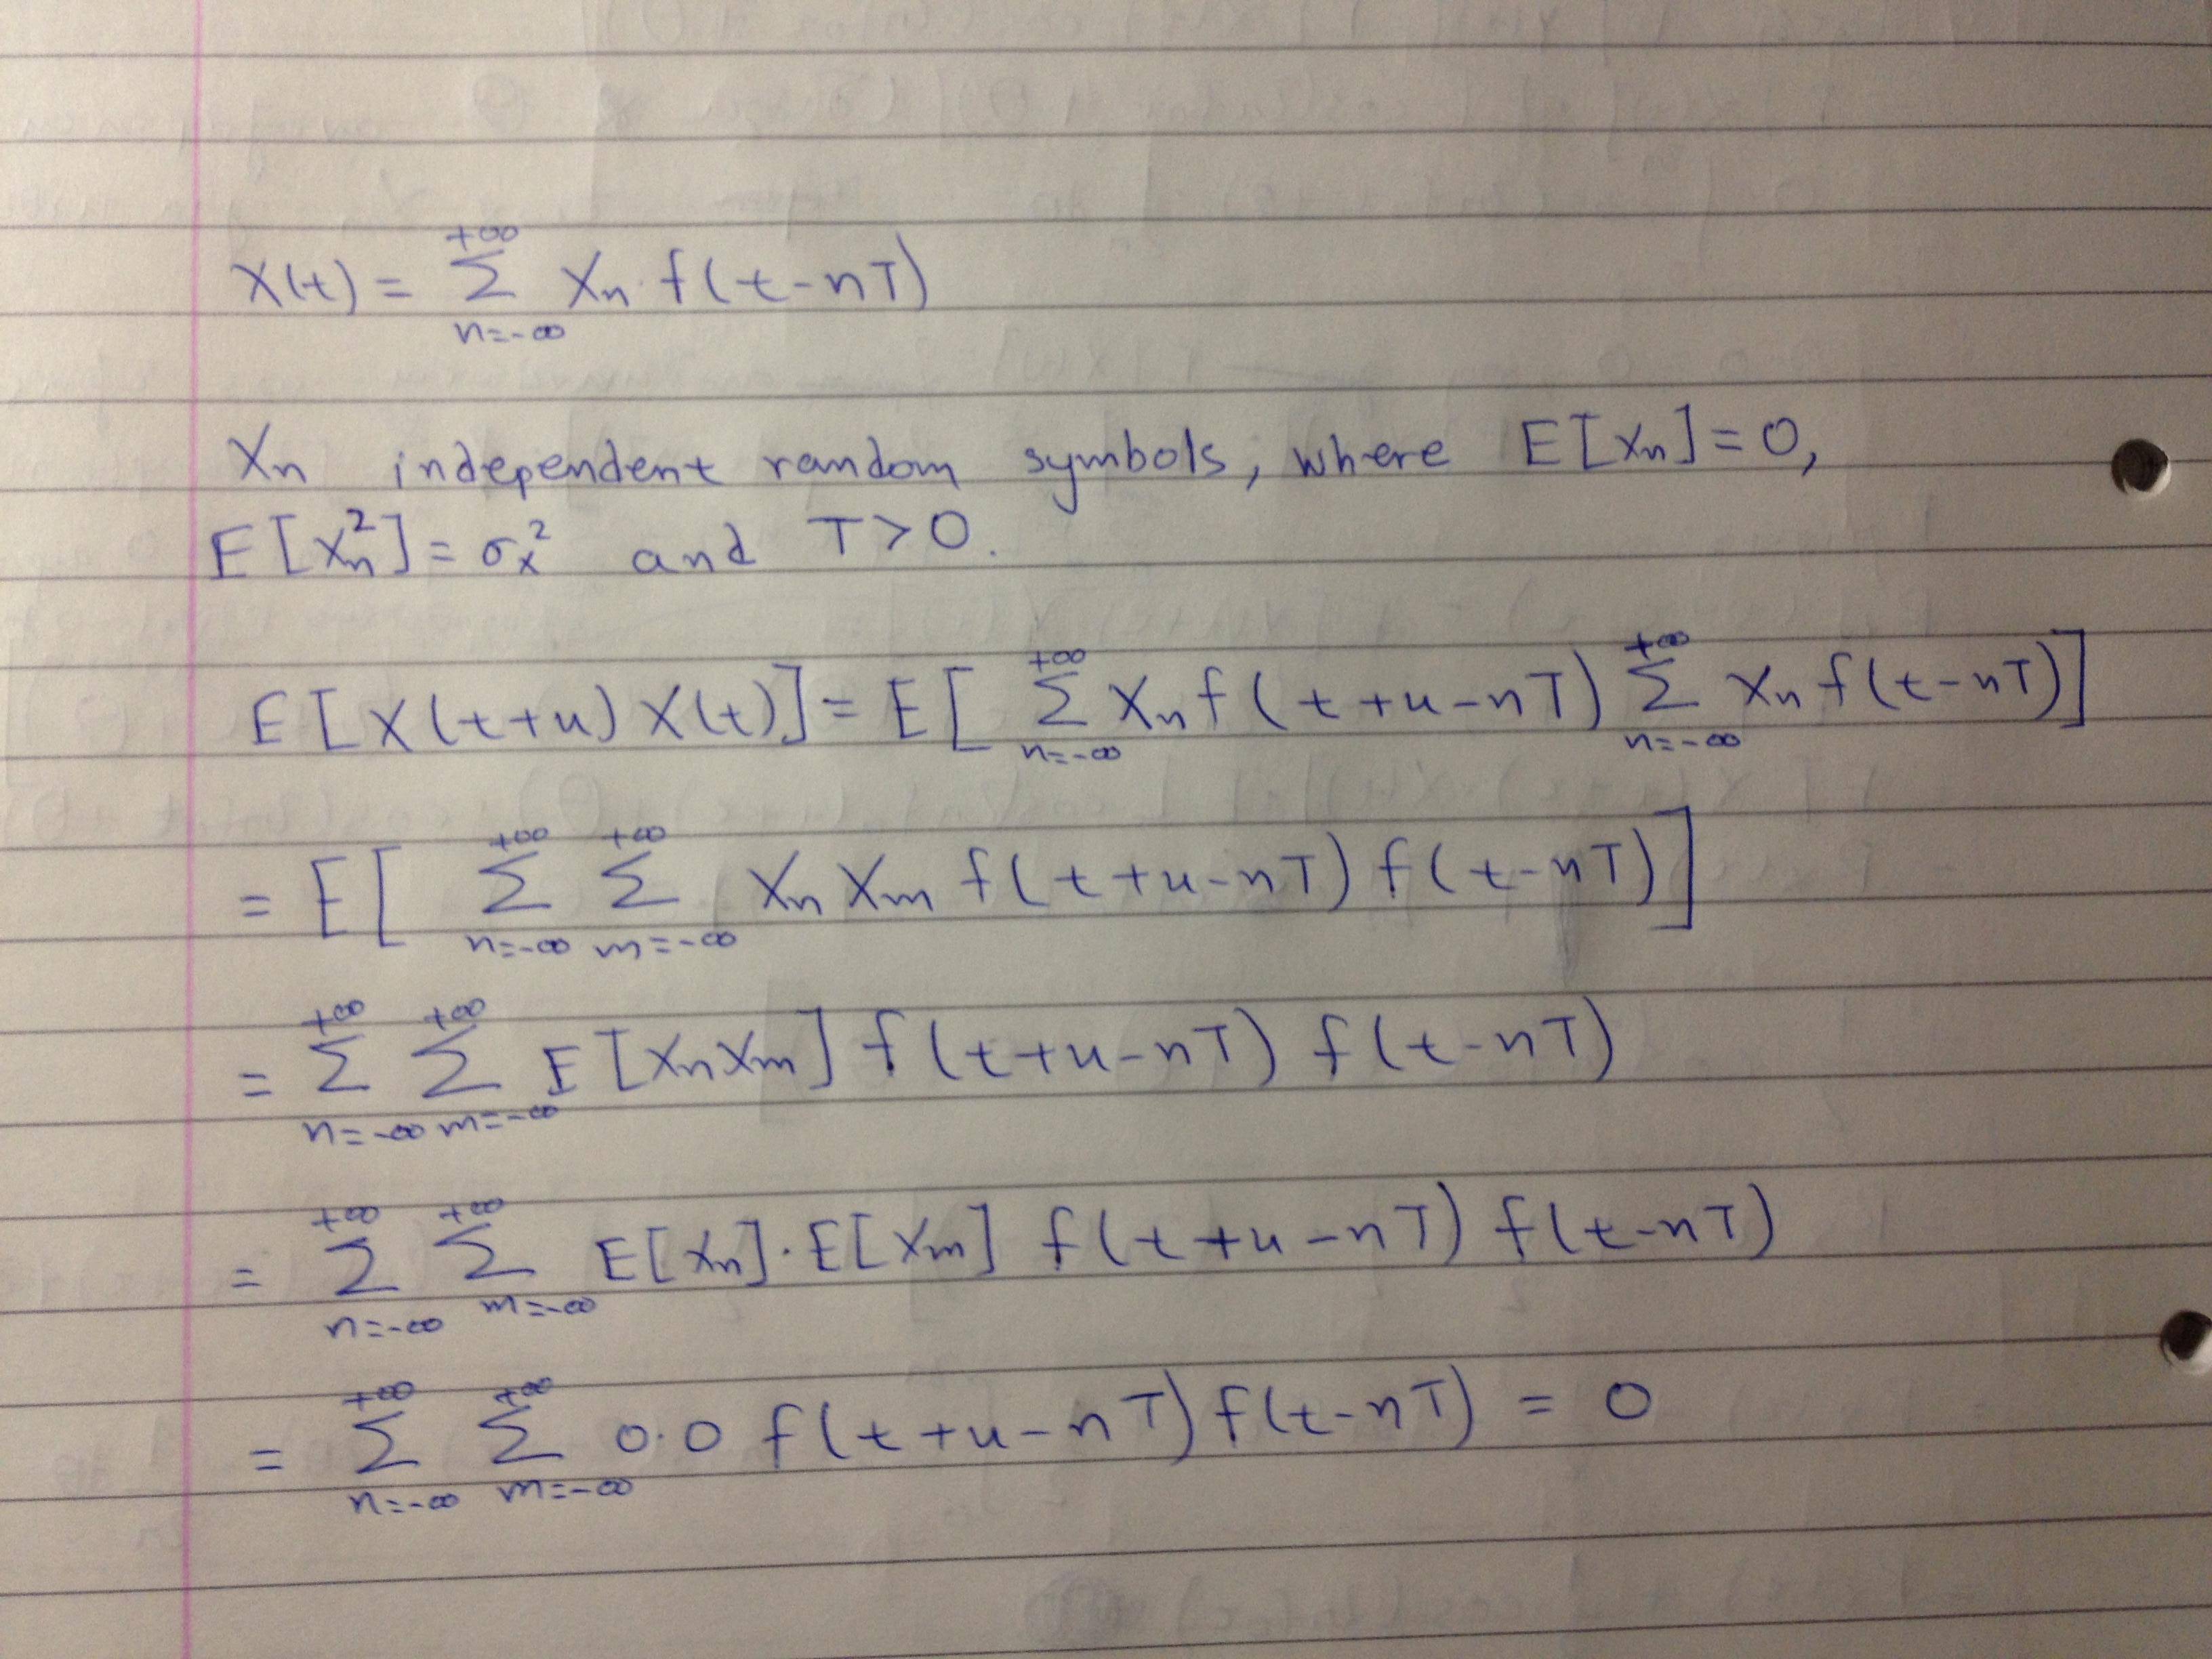 X(t) = \sum_{n=-∞}^{+∞} X_n · f(t-nT)
X_n independent random symbols, where E[X_n] = 0,
E[X_n^2] = σ_x^2 and T > 0.
E[X(t+u) X(t)] = E[ \sum_{n=-∞}^{+∞} X_n f(t+u-nT) \sum_{n=-∞}^{+∞} X_n f(t-nT) ]
= E[ \sum_{n=-∞}^{+∞} \sum_{m=-∞}^{+∞} X_n X_m f(t+u-nT) f(t-nT) ]
= \sum_{n=-∞}^{+∞} \sum_{m=-∞}^{+∞} E[X_n X_m] f(t+u-nT) f(t-nT)
= \sum_{n=-∞}^{+∞} \sum_{m=-∞}^{+∞} E[X_n] · E[X_m] f(t+u-nT) f(t-nT)
= \sum_{n=-∞}^{+∞} \sum_{m=-∞}^{+∞} 0·0 f(t+u-nT) f(t-nT) = 0